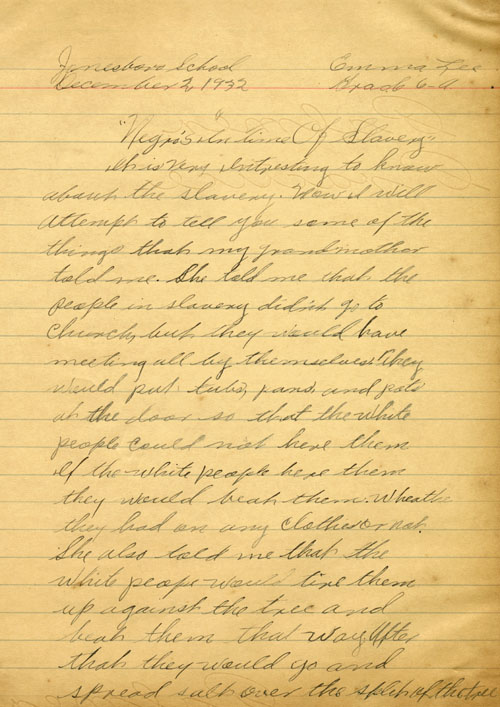 Jonesboro School Emma Lee
December 2, 1932 Grade 6-A
"Negro's In time Of Slavery"
It is very intresting to know
about the slavery. Now I will
attempt to tell you some of the
things that my grandmother
told me. She told me that the
people in slavery didn't go to
Church, but they would have
meeting all by themselves. They
would put tubs, pans, and pots
at the door so that the white
people could not here them
if the white people here them
they would beat them. Wheathe
they had on any clothes or not.
She also told me that the
white peope would tire them
up against the tree and
beat them that way After
that they would go and
spread salt over the splits of the tree